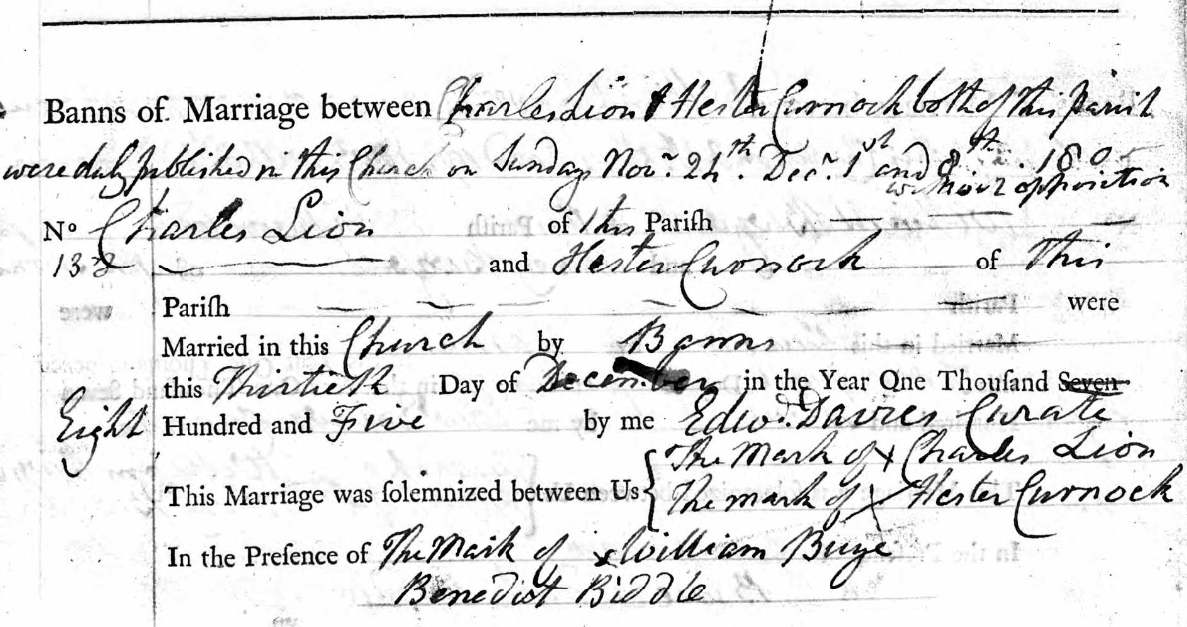 Banns of Marriage between Charles Lion & Hester Curnock both of this Parish
were duly published in this Church on Sunday Novr. 24th. Decr. 1st and 8th. 180
without opposition
No Charles Lion of this Pariſh
138 and Hester Curnock of This
Pariſh were
Married in this Church by Banns
this Thirtieth Day of December in the Year One Thouſand Seven
Eight Hundred and Five by me Edwd. Davies Curate
The Mark of x Charles Lion
This Marriage was ſolemnized between Us { The mark of x Hester Curnock
In the Preſence of The Mark of x William Buye
Benedict Biddle